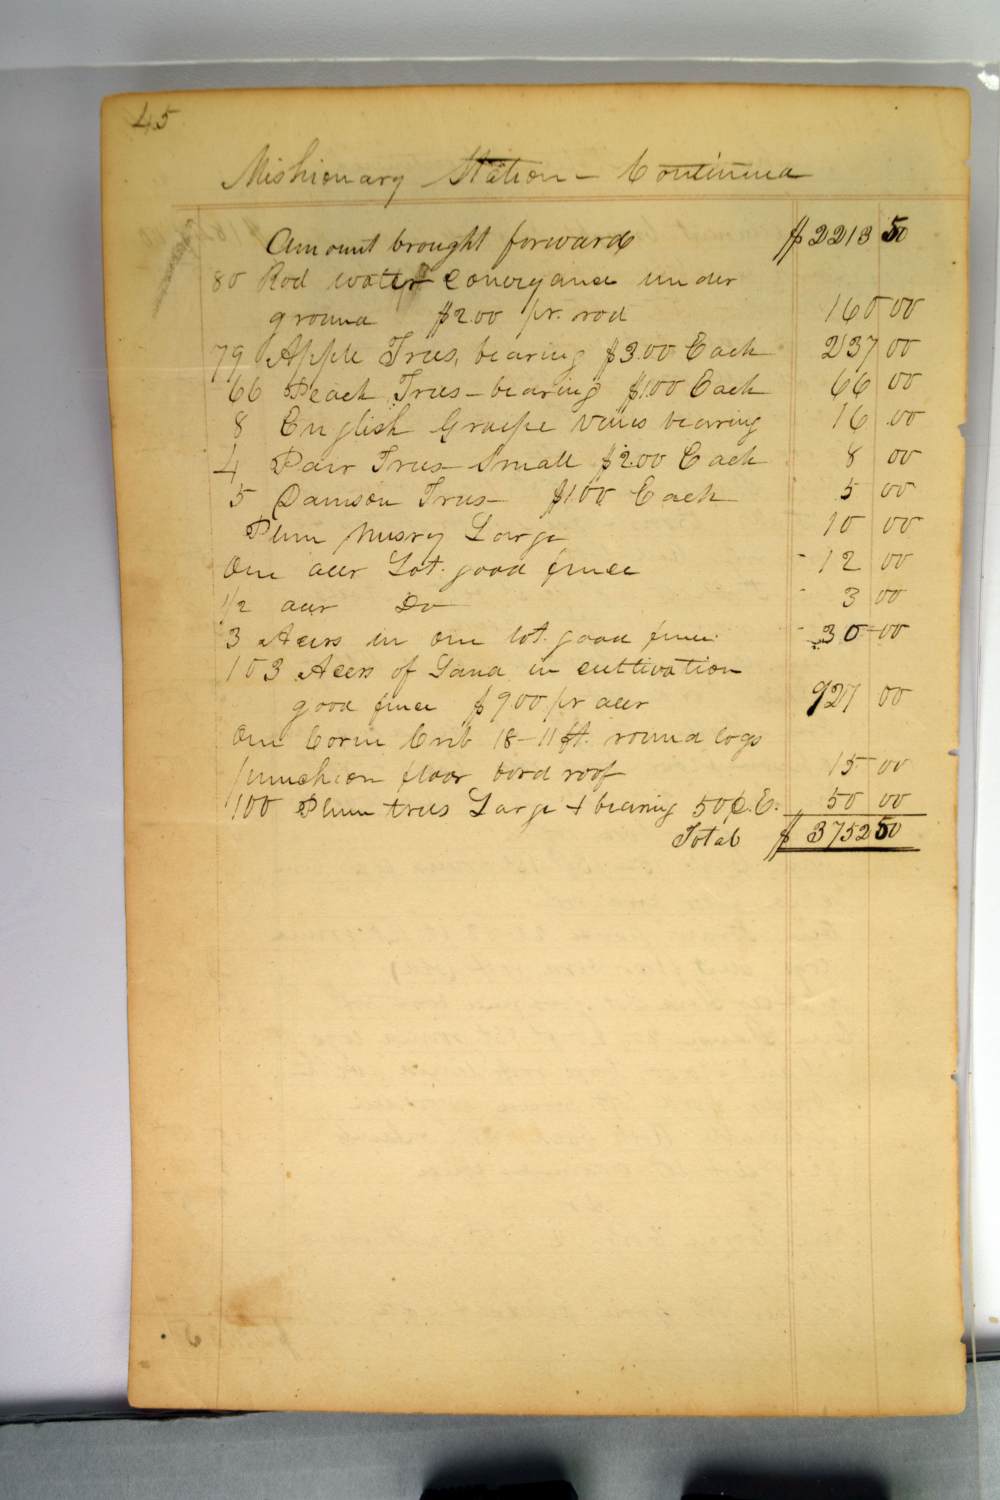 45
Mishionary Station - Continued
Amount brought forward $2213 50
80 Rod water conveyance under
ground $2.00 pr. rod 160 00
79 Apple Trees, bearing $3.00 Each 237 00
66 Peach Trees - bearing $1.00 Each 66 00
8 English Grape vines bearing 16 00
4 Pair Trees Small $2.00 Each 8 00
5 Damson Trees - $1.00 Each 5 00
Plum nusry Large 10 00
One acer Lot. good fence - 12 00
1/2 acer Do - 3 00
3 Acers in one lot. good fence - 30 00
103 Acers of Land in cultivation
good fence $9.00 pr acer 927 00
One Corn Crib 18-11 ft. round logs
puncheon floor bord roof 15 00
100 Plum trees Large + bearing 50 ¢. E. 50 00
Total $ 3752 50